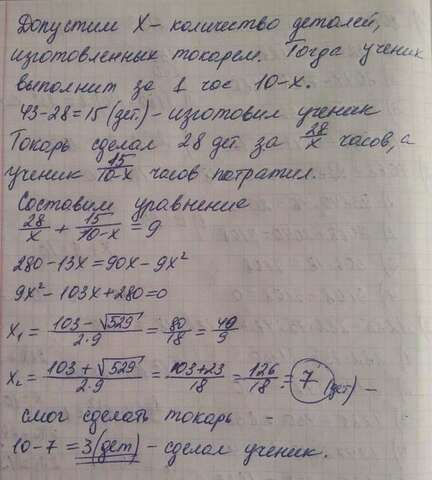 Допустим X – количество деталей,
изготовленных токарем. Тогда ученик
выполнит за 1 час 10-x.
43-28=15 (дет.) – изготовил ученик
Токарь сделал 28 дет за 28/x часов, а
ученик 15/10-x часов потратил.
Составим уравнение
28/x + 15/10-x = 9
280-13x=90x-9x²
9x²-103x+280=0
X₁ = 103-√529/2·9 = 80/18 = 40/9
X₂ = 103+√529/2·9 = 103+23/18 = 126/18 = 7 (дет) –
смог сделать токарь =
10-7=3(дет) – сделал ученик.